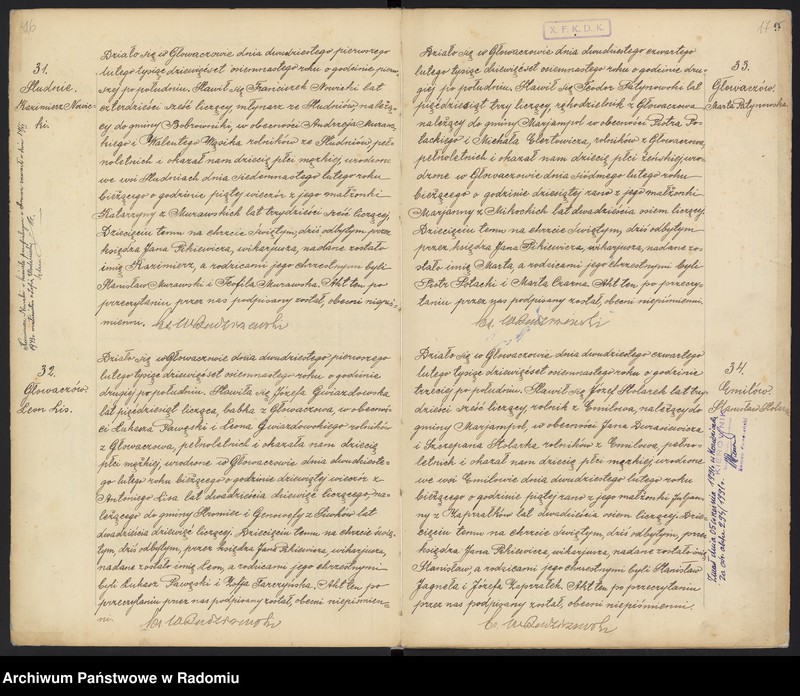 16
31.
Słudnie.
Kazimierz Nowic-
ki.
Działo się w Głowaczowie dnia dwudziestego pierwszego
lutego tysiąc dziewięćset osiemnastego roku o godzinie pierw-
szej po południu. Stawił się Franciszek Nowicki lat
czterdzieści sześć liczący, młynarz ze Słudniów, należą-
cy do gminy Bobrowniki, w obecności Andrzeja Muraw-
skiego i Walentego Wąsika rolników ze Słudniów peł-
noletnich i okazał nam dziecię płci męzkiej, urodzone
we wsi Słudniach dnia siedemnastego lutego roku
bieżącego o godzinie piątej wieczór z jego małżonki
Katarzyny z Murawskich lat trzydzieści sześć liczącej.
Dziecięciu temu na chrzcie świętym, dziś odbytym przez
księdza Jana Pikiewicza, wikarjusza, nadane zostało
imię Kazimierz, a rodzicami jego chrzestnymi byli
Stanisław Murawski i Teofila Murawska. Akt ten po
przeczytaniu przez nas podpisany został, obecni niepiś-
mienni.
32.
Głowaczów.
Leon Lis.
Działo się w Głowaczowie dnia dwudziestego pierwszego
lutego tysiąc dziewięćset osiemnastego roku o godzinie
drugiej po południu. Stawiła się Józefa Gwiazdowska
lat pięćdziesiąt licząca, babka z Głowaczowa, w obecnoś-
ci Łukasza Pawęski i Leona Gwiazdowskiego rolników
z Głowaczowa, pełnoletnich i okazała nam dziecię
płci męzkiej, urodzone w Głowaczowie dnia dwudzieste-
go lutego roku bieżącego o godzinie dziewiątej wieczór z
Antoniego Lisa lat dwadzieścia dziewięć liczącego na-
leżącego do gminy i Genowefy z
dwadzieścia dziewięć liczącej. Dziecięciu temu na chrzcie świę-
tym, dziś odbytym, przez księdza Jana Pikiewicza, wikarjusza,
nadane zostało imię Leon, a rodzicami jego chrzestnymi
byli Łukasz Pawęski i Zofja Tarczyńska. Akt ten po
przeczytaniu przez nas podpisany został, obecni niepiśmien-
ni.
X. F. K. D. K.
17
33.
Głowaczów.
Marta Potynowska.
Działo się w Głowaczowie dnia dwudziestego czwartego
lutego tysiąc dziewięćset osiemnastego roku o godzinie dru-
giej po południu. Stawił się Teodor lat
pięćdziesiąt trzy liczący, rękodzielnik z Głowaczowa
należący do gminy Marjampol w obecności Piotra Po-
łackiego i Michała rolników z Głowaczowa,
pełnoletnich i okazał nam dziecię płci żeńskiej uro-
dzone w Głowaczowie dnia siódmego lutego roku
bieżącego o godzinie dziesiątej rano z jego małżonki
Marjanny z lat dwadzieścia osiem liczącej.
Dziecięciu temu na chrzcie świętym, dziś odbytym
przez księdza Jana Pikiewicza, wikarjusza, nadane zo-
stało imię Marta, a rodzicami jego chrzestnymi byli
Piotr Połacki i Marta Czarna. Akt ten po przeczy-
taniu przez nas podpisany został, obecni niepiśmienni.
34.
Emilów.
Stanisław Stolarek.
Działo się w Głowaczowie dnia dwudziestego czwartego
lutego tysiąc dziewięćset osiemnastego roku o godzinie
trzeciej po południu. Stawił się Józef Stolarek lat trzy-
dzieści sześć liczący, rolnik z Emilowa, należący do
gminy Marjampol, w obecności Jana
i Szczepana Stolarka rolników z Emilowa, pełno-
letnich i okazał nam dziecię płci męzkiej urodzone
we wsi Emilowie dnia dwudziestego lutego roku
bieżącego o godzinie piątej rano z jego małżonki Juljan-
ny z lat dwadzieścia osiem liczącej. Dzie-
cięciu temu na chrzcie świętym, dziś odbytym, przez
księdza Jana Pikiewicza, wikarjusza, nadane zostało imię
Stanisław, a rodzicami jego chrzestnymi byli Stanisław
Jagnieła i Józefa Zaprzałek. Akt ten po przeczytaniu
przez nas podpisany został, obecni niepiśmienni.
Archiwum Państwowe w Radomiu